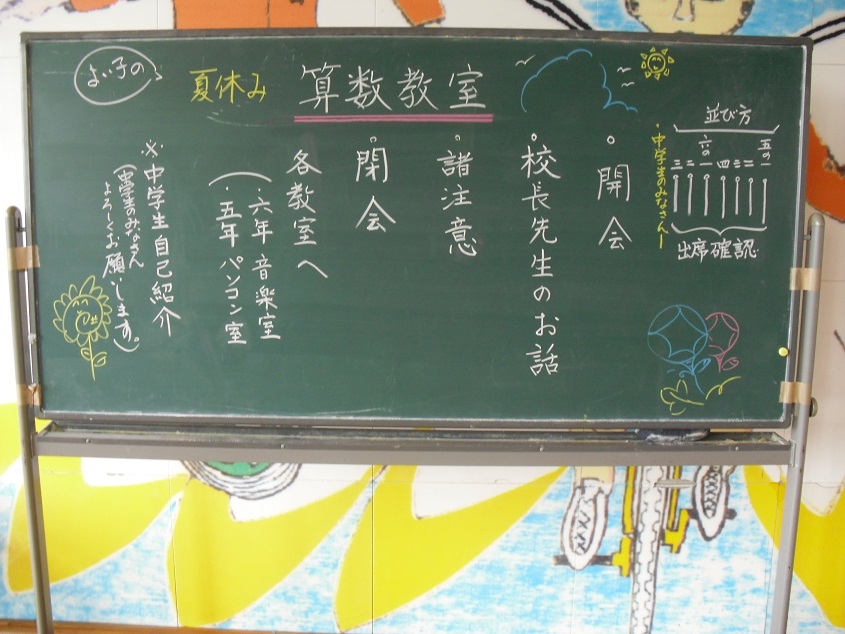 よい子の 夏休み 算数教室
並び方
五の一
二
三
四
六の一
二
三
出席確認
・中学生のみなさんー
。開会
。校長先生のお話
。諸注意
。閉会
各教室へ
(・六年 音楽室
・五年 パソコン室
※中学生自己紹介
(中学生のみなさん
よろしくお願いします。)